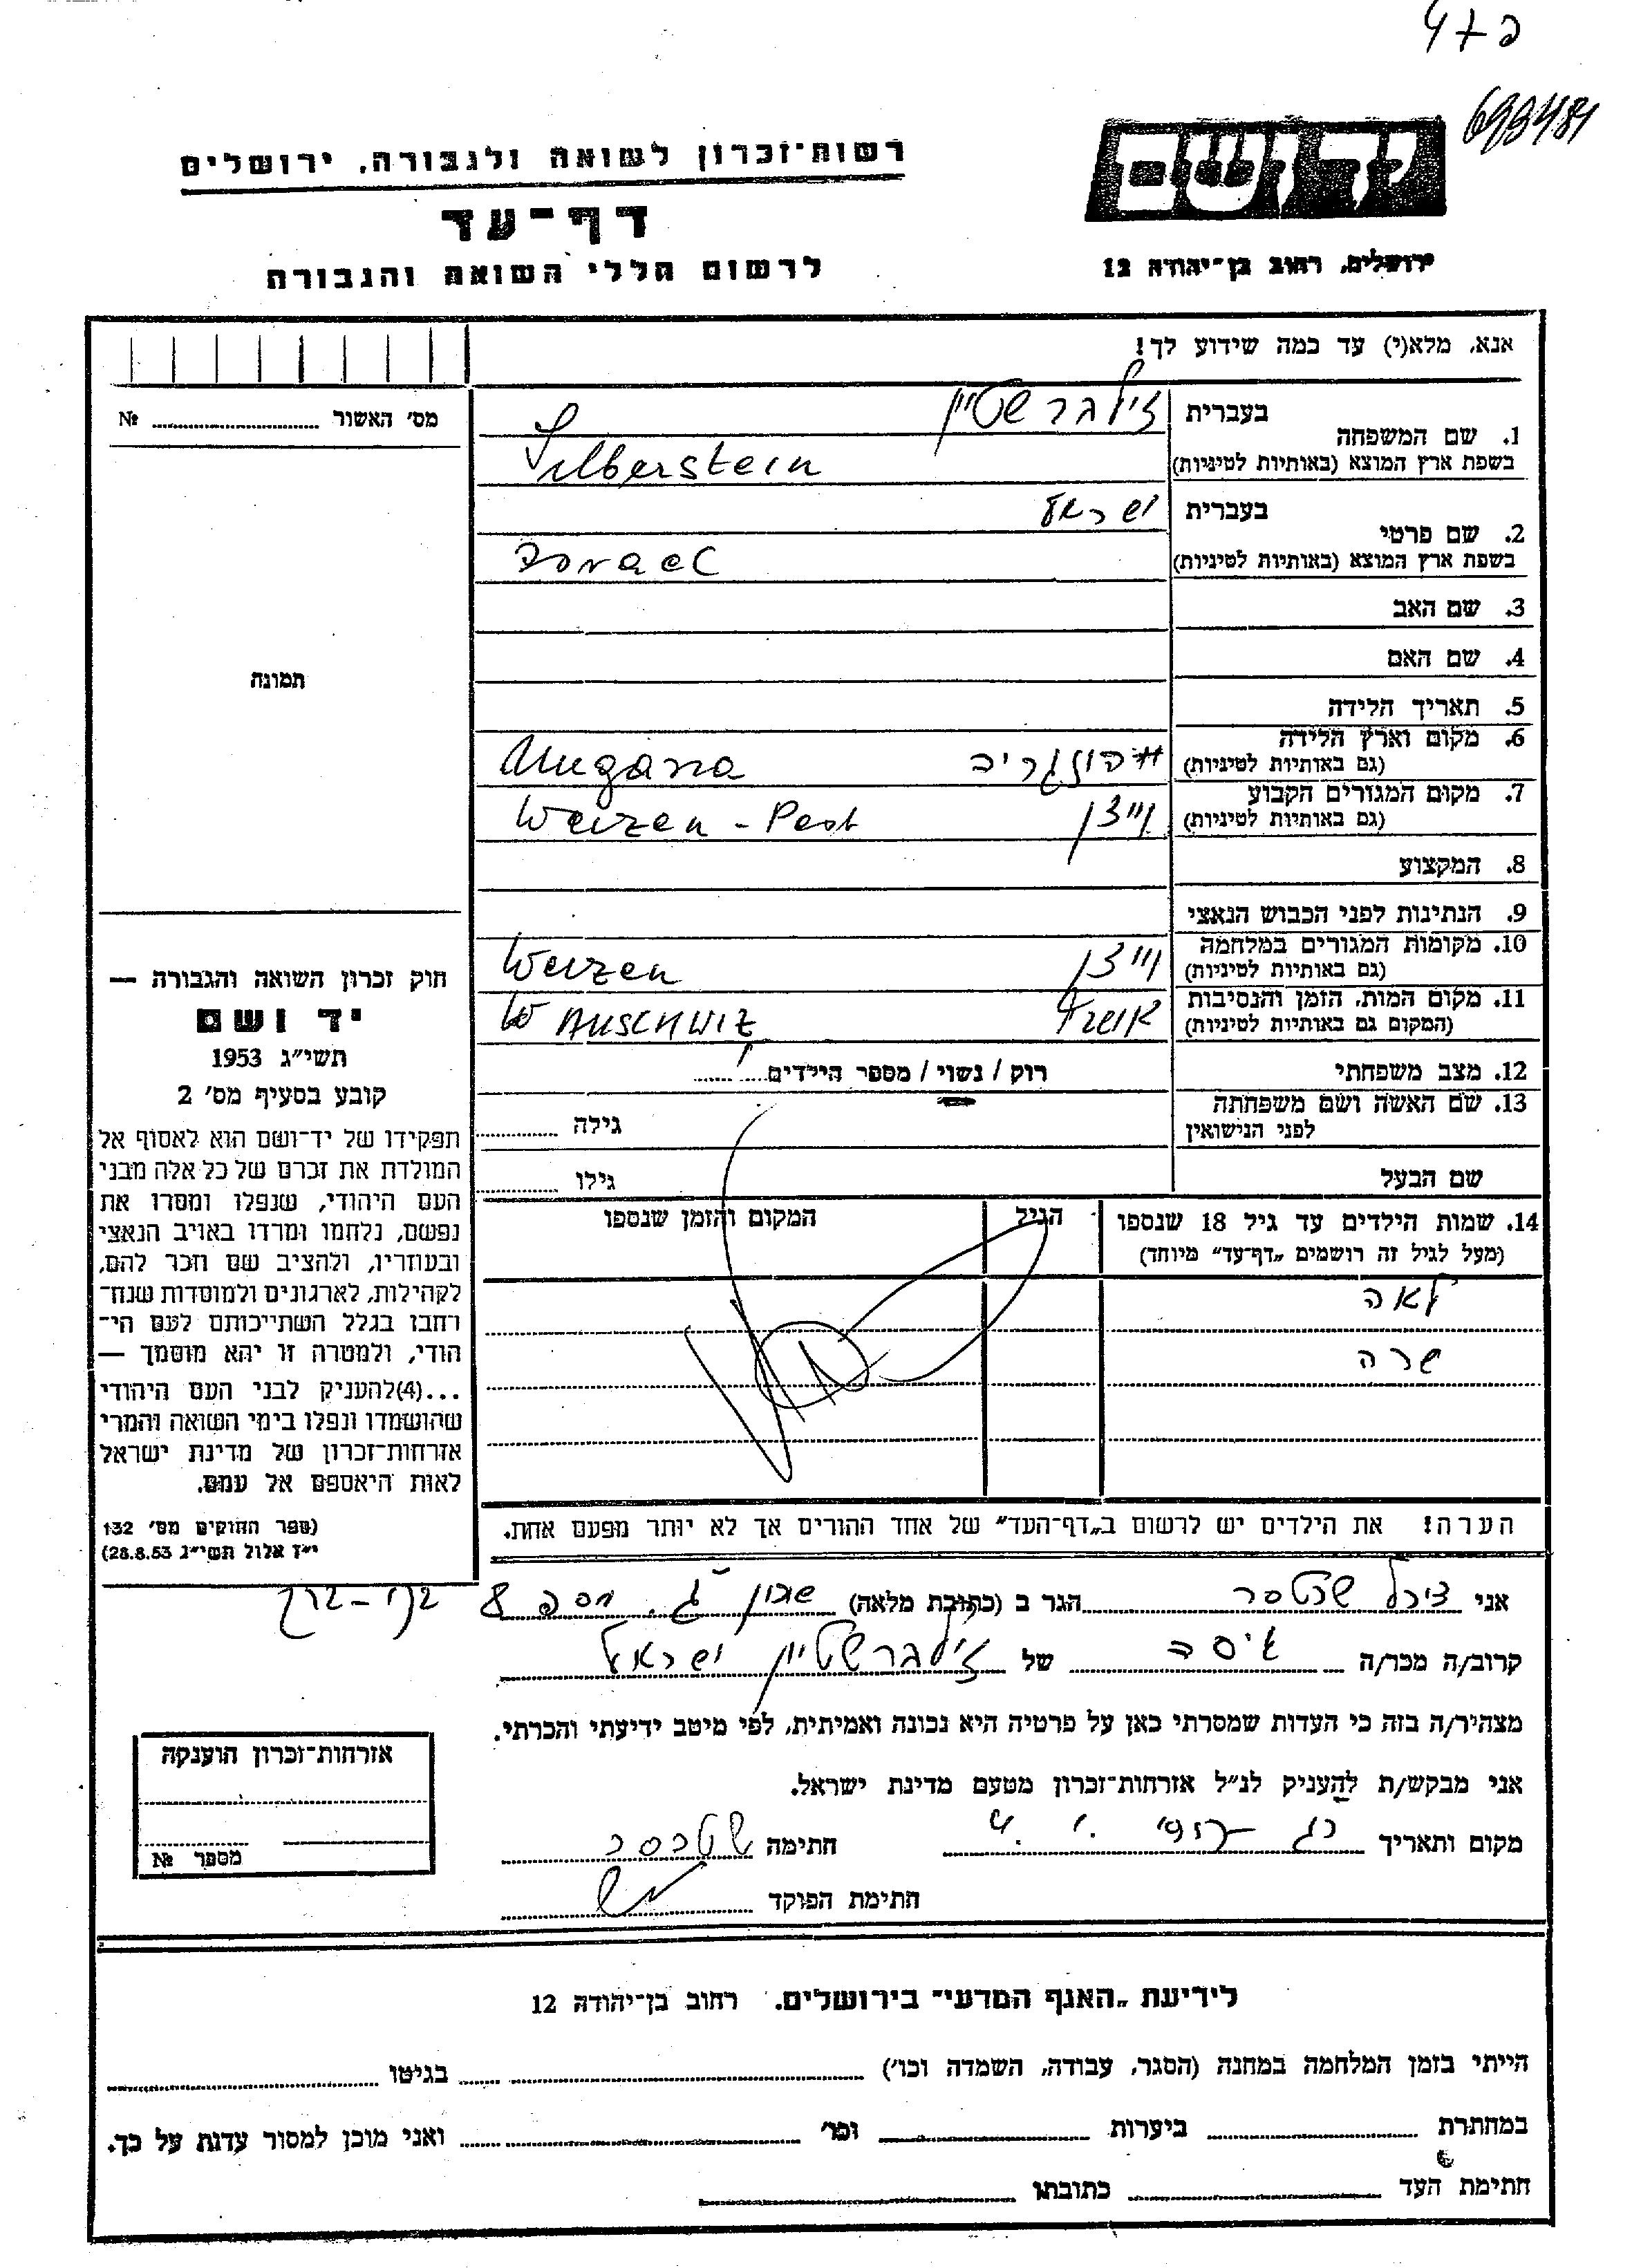 693484
יד ושם
רשות־זכרון לשואה ולגבורה, ירושלים
דף־עד
לרשום חללי השואה והגבורה
ירושלים, רחוב בן־יהודה 12
אנא, מלא(י) עד כמה שידוע לך!
מס׳ האשור № 
1. שם המשפחה
בעברית זילברשטיין
בשפת ארץ המוצא (באותיות לטיניות) Silberstein
2. שם פרטי
בעברית ישראל
בשפת ארץ המוצא (באותיות לטיניות)
3. שם האב
4. שם האם
תמונה
5. תאריך הלידה
6. מקום וארץ הלידה
(גם באותיות לטיניות) הונגריה Ungaria
7. מקום המגורים הקבוע
(גם באותיות לטיניות) ווייצן Weizen - Pest
8. המקצוע
9. הנתינות לפני הכבוש הנאצי
10. מקומות המגורים במלחמה
(גם באותיות לטיניות) ווייצן Weizen
11. מקום המות, הזמן והנסיבות
(המקום גם באותיות לטיניות) AUSCHWIZ
12. מצב משפחתי רוק / נשוי / מספר הילדים
13. שם האשה ושם משפחתה
לפני הנישואין גילה
שם הבעל גילו
14. שמות הילדים עד גיל 18 שנספו הגיל המקום והזמן שנספו
(מעל לגיל זה רושמים „דף־עד״ מיוחד)
לאה
שרה
הערה! את הילדים יש לרשום ב„דף־העד״ של אחד ההורים אך לא יותר מפעם אחת.
חוק זכרון השואה והגבורה —
יד ושם
תשי״ג 1953
קובע בסעיף מס׳ 2
תפקידו של יד־ושם הוא לאסוף אל
המולדת את זכרם של כל אלה מבני
העם היהודי, שנפלו ומסרו את
נפשם, נלחמו ומרדו באויב הנאצי
ובעוזריו, ולהציב שם וזכר להם,
לקהילות, לארגונים ולמוסדות שנח־
רחבו בגלל השתייכותם לעם הי־
הודי, ולמטרה זו יהא מוסמך —
...(4)להעניק לבני העם היהודי
שהושמדו ונפלו בימי השואה והמרי
אזרחות־זכרון של מדינת ישראל
לאות היאספם אל עמם.
(ספר החוקים מס׳ 132
י״ז אלול תשי״ג 28.8.53)
אני הגר ב (כתובת מלאה) 8 בני-ברק
קרוב/ה מכר/ה גיסה של זילברשטיין ישראל
מצהיר/ה בזה כי העדות שמסרתי כאן על פרטיה היא נכונה ואמיתית, לפי מיטב ידיעתי והכרתי.
אני מבקש/ת להעניק לנ״ל אזרחות־זכרון מטעם מדינת ישראל.
מקום ותאריך חתימה
חתימת הפוקד
אזרחות־זכרון הוענקה
מספר №
לידיעת „האגף המדעי״ בירושלים, רחוב בן־יהודה 12
הייתי בזמן המלחמה במחנה (הסגר, עבודה, השמדה וכו׳) בגיטו
במחתרת ביערות וכו׳ ואני מוכן למסור עדות על כך.
חתימת העד כתובתו